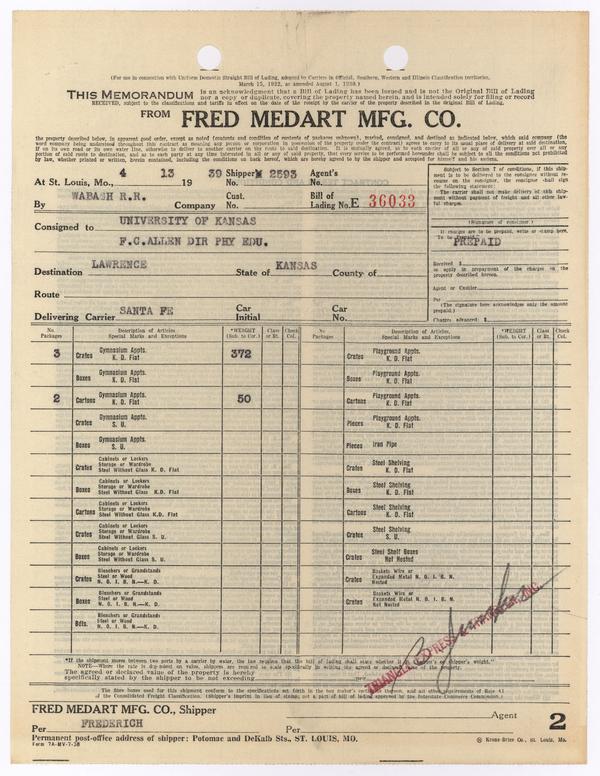 (For use in connection with Uniform Domestic Straight Bill of Lading, adopted by Carriers in Official, Southern, Western and Illinois Classification territories,
March 15, 1922, as amended August 1, 1930.)
THIS MEMORANDUM is an acknowledgment that a Bill of Lading has been issued and is not the Original Bill of Lading
nor a copy or duplicate, covering the property named herein, and is intended solely for filing or record
RECEIVED, subject to the classifications and tariffs in effect on the date of the receipt by the carrier of the property described in the Original Bill of Lading.
FROM FRED MEDART MFG. CO.
the property described below, in apparent good order, except as noted (contents and condition of contents of packages unknown), marked, consigned, and destined as indicated below, which said company (the
word company being understood throughout this contract as meaning any person or corporation in possession of the property under the contract) agrees to carry to its usual place of delivery at said destination,
if on its own road or its own water line, otherwise to deliver to another carrier on the route to said destination. It is mutually agreed, as to each carrier of all or any of said property over all or any
portion of said route to destination, and as to each party at any time interested in all or any of said property, that every service to be performed hereunder shall be subject to all the conditions not prohibited
by law, whether printed or written, herein contained, including the conditions on back hereof, which are hereby agreed to by the shipper and accepted for himself and his assigns.
At St. Louis, Mo., 4 13 19 39 Shipper's No. 2593 Agent's No.
By WABASH R.R. Company Cust. No. Bill of Lading No. E 36033
Consigned to UNIVERSITY OF KANSAS
F.C.ALLEN DIR PHY EDU.
Destination LAWRENCE State of KANSAS County of
Route
Delivering Carrier SANTA FE Car Initial Car No.
Subject to Section 7 of conditions, if this shipment
is to be delivered to the consignee without recourse
on the consignor, the consignor shall sign
the following statement:
The carrier shall not make delivery of this shipment
without payment of freight and all other lawful
charges.
(Signature of consignor.)
If charges are to be prepaid, write or stamp here,
To be Prepaid."
PREPAID
Received $
to apply in prepayment of the charges on the
property described hereon.
Agent or Cashier
Per
(The signature here acknowledges only the amount
prepaid.)
Charges advanced: $
No. Packages Description of Articles Special Marks and Exceptions *WEIGHT (Sub. to Cor.) Class or Rt. Check Col.
3 Crates Gymnasium Appts. K. D. Flat 372
Boxes Gymnasium Appts. K. D. Flat
2 Cartons Gymnasium Appts. K. D. Flat 50
Crates Gymnasium Appts. S. U.
Boxes Gymnasium Appts. S. U.
Crates Cabinets or Lockers Storage or Wardrobe Steel Without Glass K.D. Flat
Boxes Cabinets or Lockers Storage or Wardrobe Steel Without Glass K.D. Flat
Cartons Cabinets or Lockers Storage or Wardrobe Steel Without Glass K.D. Flat
Crates Cabinets or Lockers Storage or Wardrobe Steel Without Glass S. U.
Boxes Cabinets or Lockers Storage or Wardrobe Steel Without Glass S. U.
Crates Bleachers or Grandstands Steel or Wood N. O. I. B. N.—K. D.
Boxes Bleachers or Grandstands Steel or Wood N. O. I. B. N.—K. D.
Bdls. Bleachers or Grandstands Steel or Wood N. O. I. B. N.—K. D.
No. Packages Description of Articles Special Marks and Exceptions *WEIGHT (Sub. to Cor.) Class or Rt. Check Col.
Crates Playground Appts. K. D. Flat
Boxes Playground Appts. K. D. Flat
Cartons Playground Appts. K. D. Flat
Pieces Playground Appts. K. D. Flat
Pieces Iron Pipe
Crates Steel Shelving K. D. Flat
Boxes Steel Shelving K. D. Flat
Crates Steel Shelving S. U.
Crates Steel Shelf Boxes Not Nested
Crates Baskets Wire or Expanded Metal N. O. I. B. N. Nested
Crates Baskets Wire or Expanded Metal N. O. I. B. N. Not Nested
TRIANGLE EXPRESS
*If the shipment moves between two ports by a carrier by water, the law requires that the bill of lading shall state whether it is "carrier's or shipper's weight."
NOTE—Where the rate is dependent on value, shippers are required to state specifically in writing the agreed or declared value of the property.
The agreed or declared value of the property is hereby
specifically stated by the shipper to be not exceeding per
The fibre boxes used for this shipment conform to the specifications set forth in the box maker's certificate thereon, and all other requirements of Rule 41
of the Consolidated Freight Classification. (Shipper's imprint in lieu of stamp, not a part of bill of lading approved by the Interstate Commerce Commission.)
FRED MEDART MFG. CO., Shipper Agent 2
Per FREDERICH Per
Permanent post-office address of shipper: Potomac and DeKalb Sts., ST. LOUIS, MO.
Form 7A-MV-7-38 © Krone-Brier Co., St. Louis, Mo.